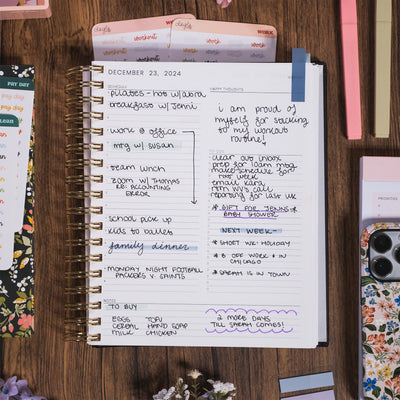 PAY DAY
DECEMBER 23, 2024
SCHEDULE
pilates - hot w/ laura
breakfast w/ Jenni
work @ office
mtg w/ susan
team lunch
zoom w/ Thomas
RE: ACCOUNTING
ERROR
school pick up
kids to ballet
family dinner
MONDAY NIGHT FOOTBALL
PACKERS V. SAINTS
HAPPY THOUGHTS
i am proud of
myself for sticking
to my workout
routine!
TO DO
clear out inbox
prep for 10am mtg
make schedule for
next week
email kara
reporting for last wk
* GIFT FOR JENNI'S
BABY SHOWER
NEXT WEEK-
* SHORT WK-HOLIDAY
* B OFF WORK + IN
CHICAGO
* SARAH IS IN TOWN
NOTES
TO BUY
EGGS TOFU
CEREAL HAND SOAP
MILK CHICKEN
2 MORE DAYS
TILL SARAH COMES!
PRIORITIES